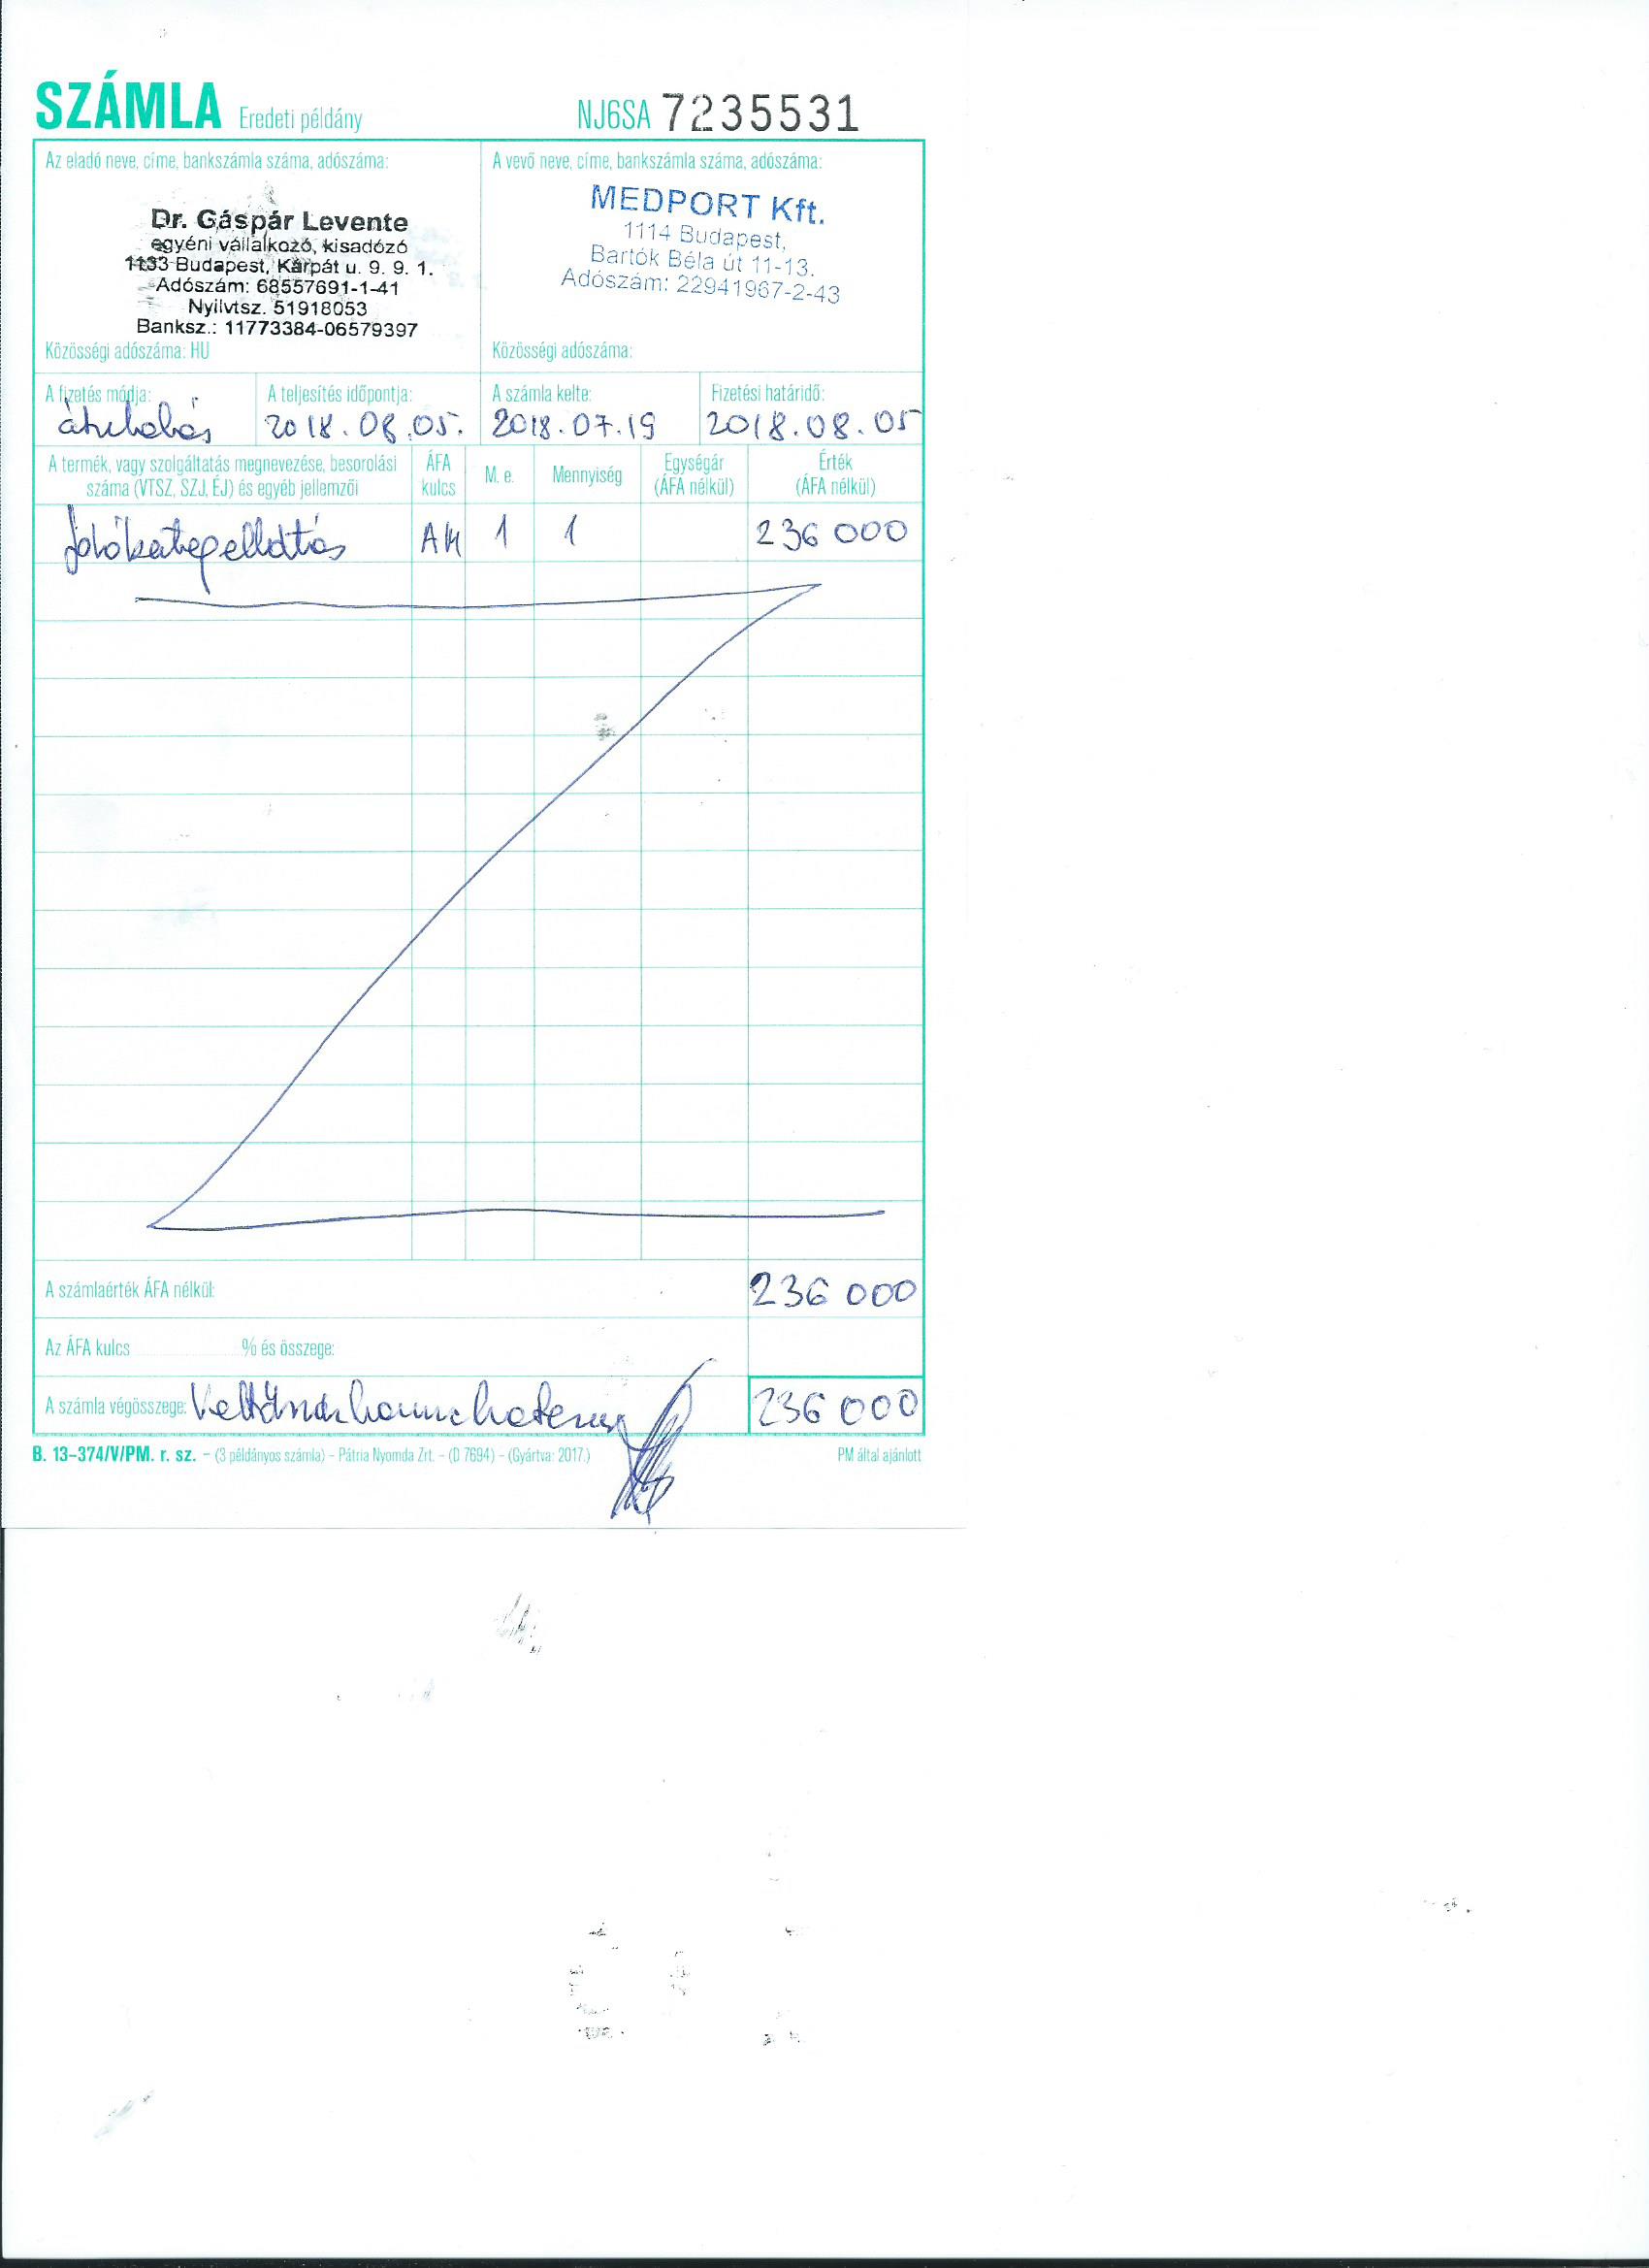 SZÁMLA Eredeti példány NJ6SA 7235531
Az eladó neve, címe, bankszámla száma, adószáma:
Dr. Gáspár Levente
egyéni vállalkozó, kisadózó
1133 Budapest, Kárpát u. 9. 9. 1.
Adószám: 68557691-1-41
Nyilvtsz. 51918053
Banksz.: 11773384-06579397
Közösségi adószáma: HU
A vevő neve, címe, bankszámla száma, adószáma:
MEDPORT Kft.
1114 Budapest,
Bartók Béla út 11-13.
Adószám: 22941967-2-43
Közösségi adószáma:
A fizetés módja:
átutalás
A teljesítés időpontja:
2018.08.05.
A számla kelte:
2018.07.19
Fizetési határidő:
2018.08.05
A termék, vagy szolgáltatás megnevezése, besorolási
száma (VTSZ, SZJ, ÉJ) és egyéb jellemzői
ÁFA
kulcs
M. e.
Mennyiség
Egységár
(ÁFA nélkül)
Érték
(ÁFA nélkül)
járóbetegellátás AM 1 1 236 000
A számlaérték ÁFA nélkül: 236 000
Az ÁFA kulcs % és összege:
A számla végösszege: Kettőszázharminchatezer 236 000
B. 13-374/V/PM. r. sz. – (3 példányos számla) – Pátria Nyomda Zrt. – (D 7694) – (Gyártva: 2017.) PM által ajánlott